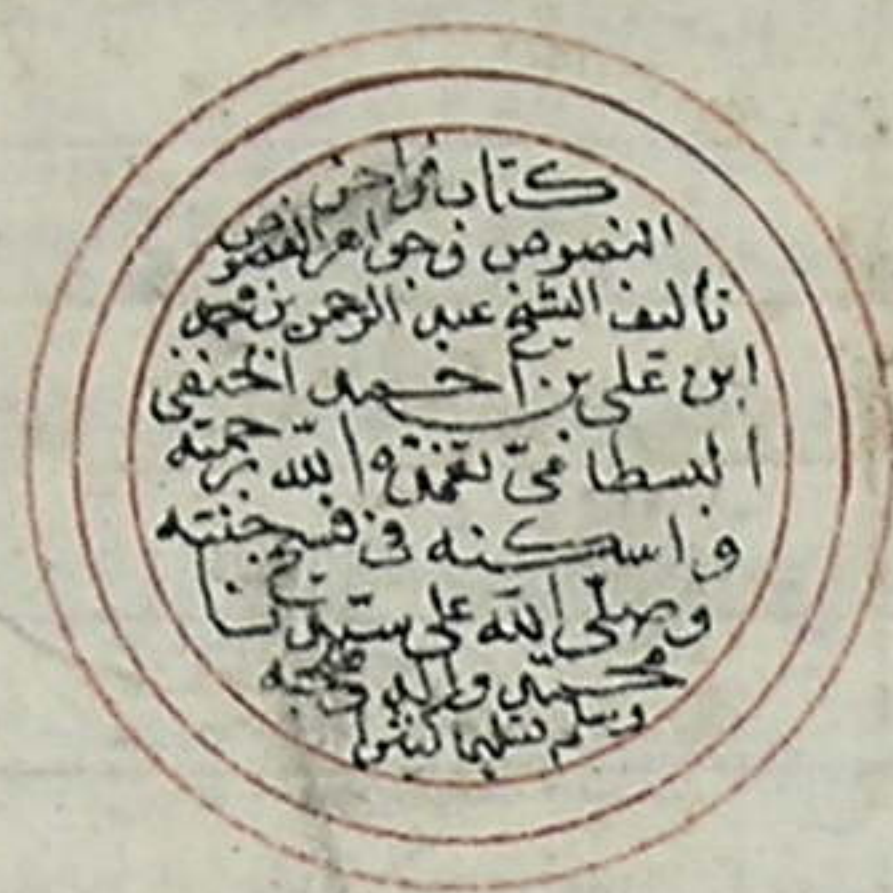 كتاب فرائض
النصوص في جواهر الفصوص
تأليف الشيخ عبد الرحمن بن محمد
ابن علي بن أحمد الحنفي
البسطامي تغمده الله برحمته
واسكنه في فسيح جنته
وصلى الله على سيدنا
محمد واله وصحبه
وسلم تسليما كثيرا